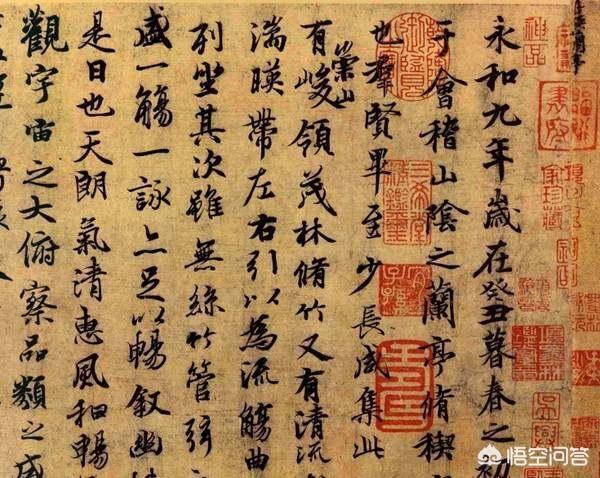 永和九年歲在癸丑暮春之初
于會稽山陰之蘭亭脩稧
也羣賢畢至少長咸集此
有崇山峻領茂林脩竹又有清流
湍暎帶左右引以為流觴曲
列坐其次雖無絲竹管弦
盛一觴一詠亦足以暢敘幽
是日也天朗氣清惠風和暢
觀宇宙之大俯察品類之盛
神品
悟空问答